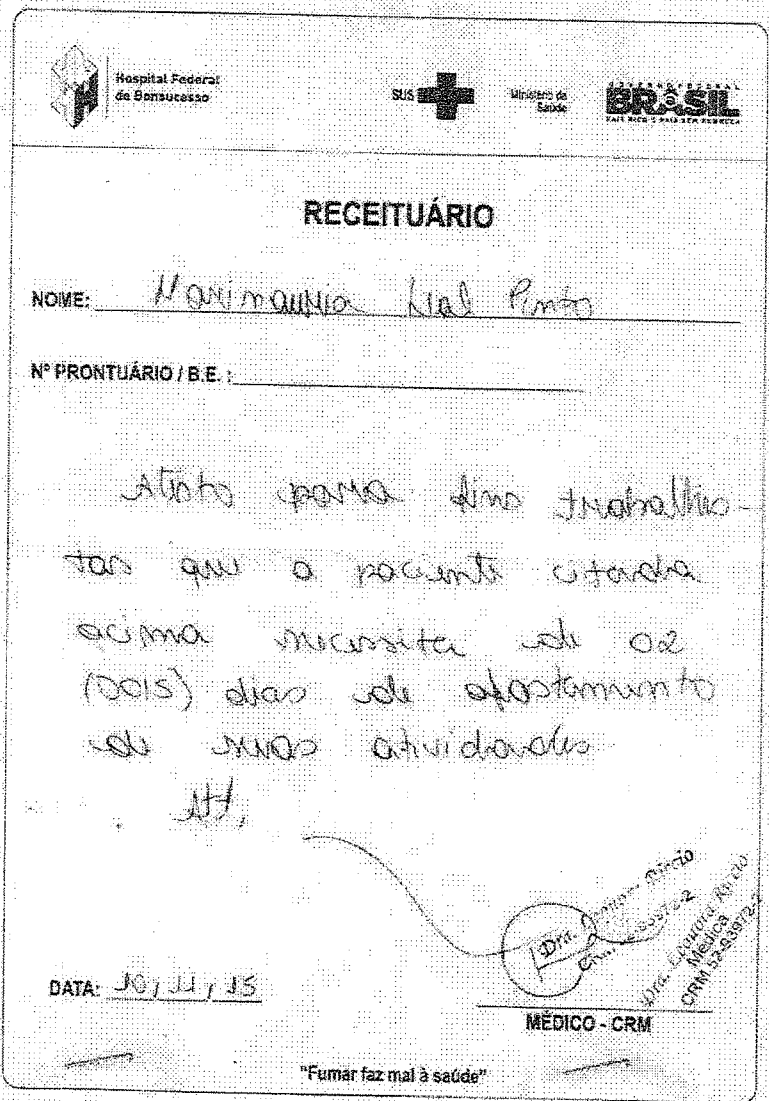 Hospital Federal
de Bonsucesso
SUS
Ministério da
Saúde
GOVERNO FEDERAL
BRASIL
PAÍS RICO É PAÍS SEM POBREZA
RECEITUÁRIO
NOME: Leal Pinto
Nº PRONTUÁRIO / B.E. :
Atesto para fins trabalhis-
tas que a paciente citada
acima necessita de 02
(DOIS) dias de afastamento
de suas atividades
Att,
Dra.
Dra.
Médica
CRM 52-83972-2
DATA: 10/11/15
MÉDICO - CRM
"Fumar faz mal à saúde"